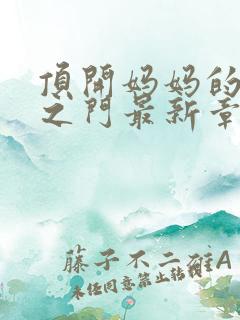 頂開妈妈的
之门最新章
藤子不二雄A
未经同意禁止转载